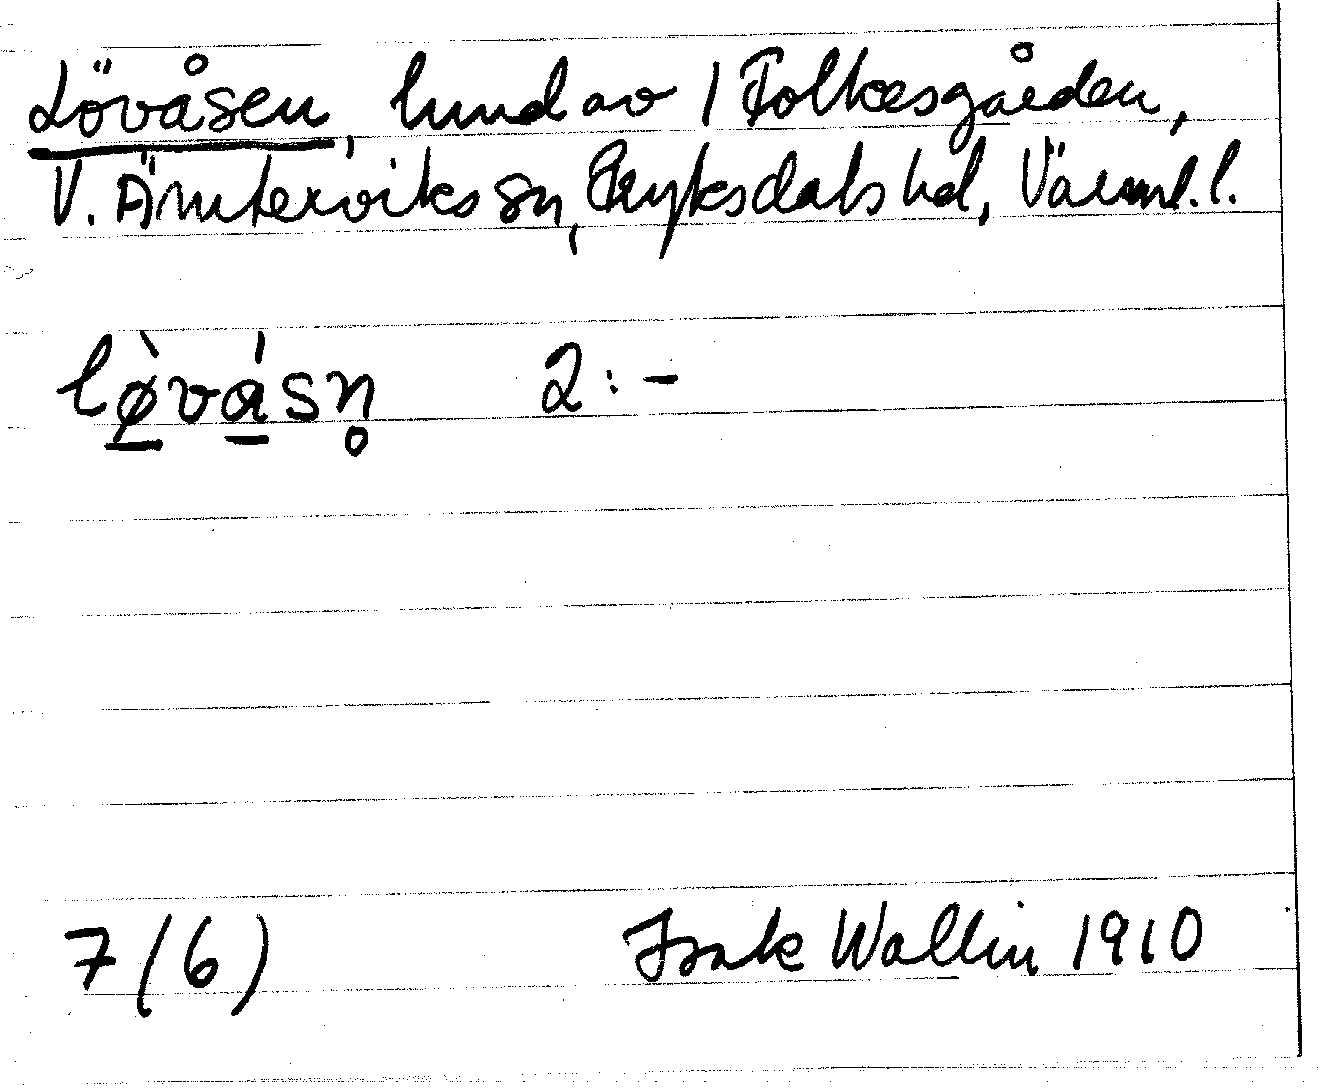 Lövåsen, hmd av 1 Folkesgården,
V. Ämterviks sn, Fryksdals hd, Värml. l.
lø̀vásn̥ 2:-
7(6) Isak Wallin 1910